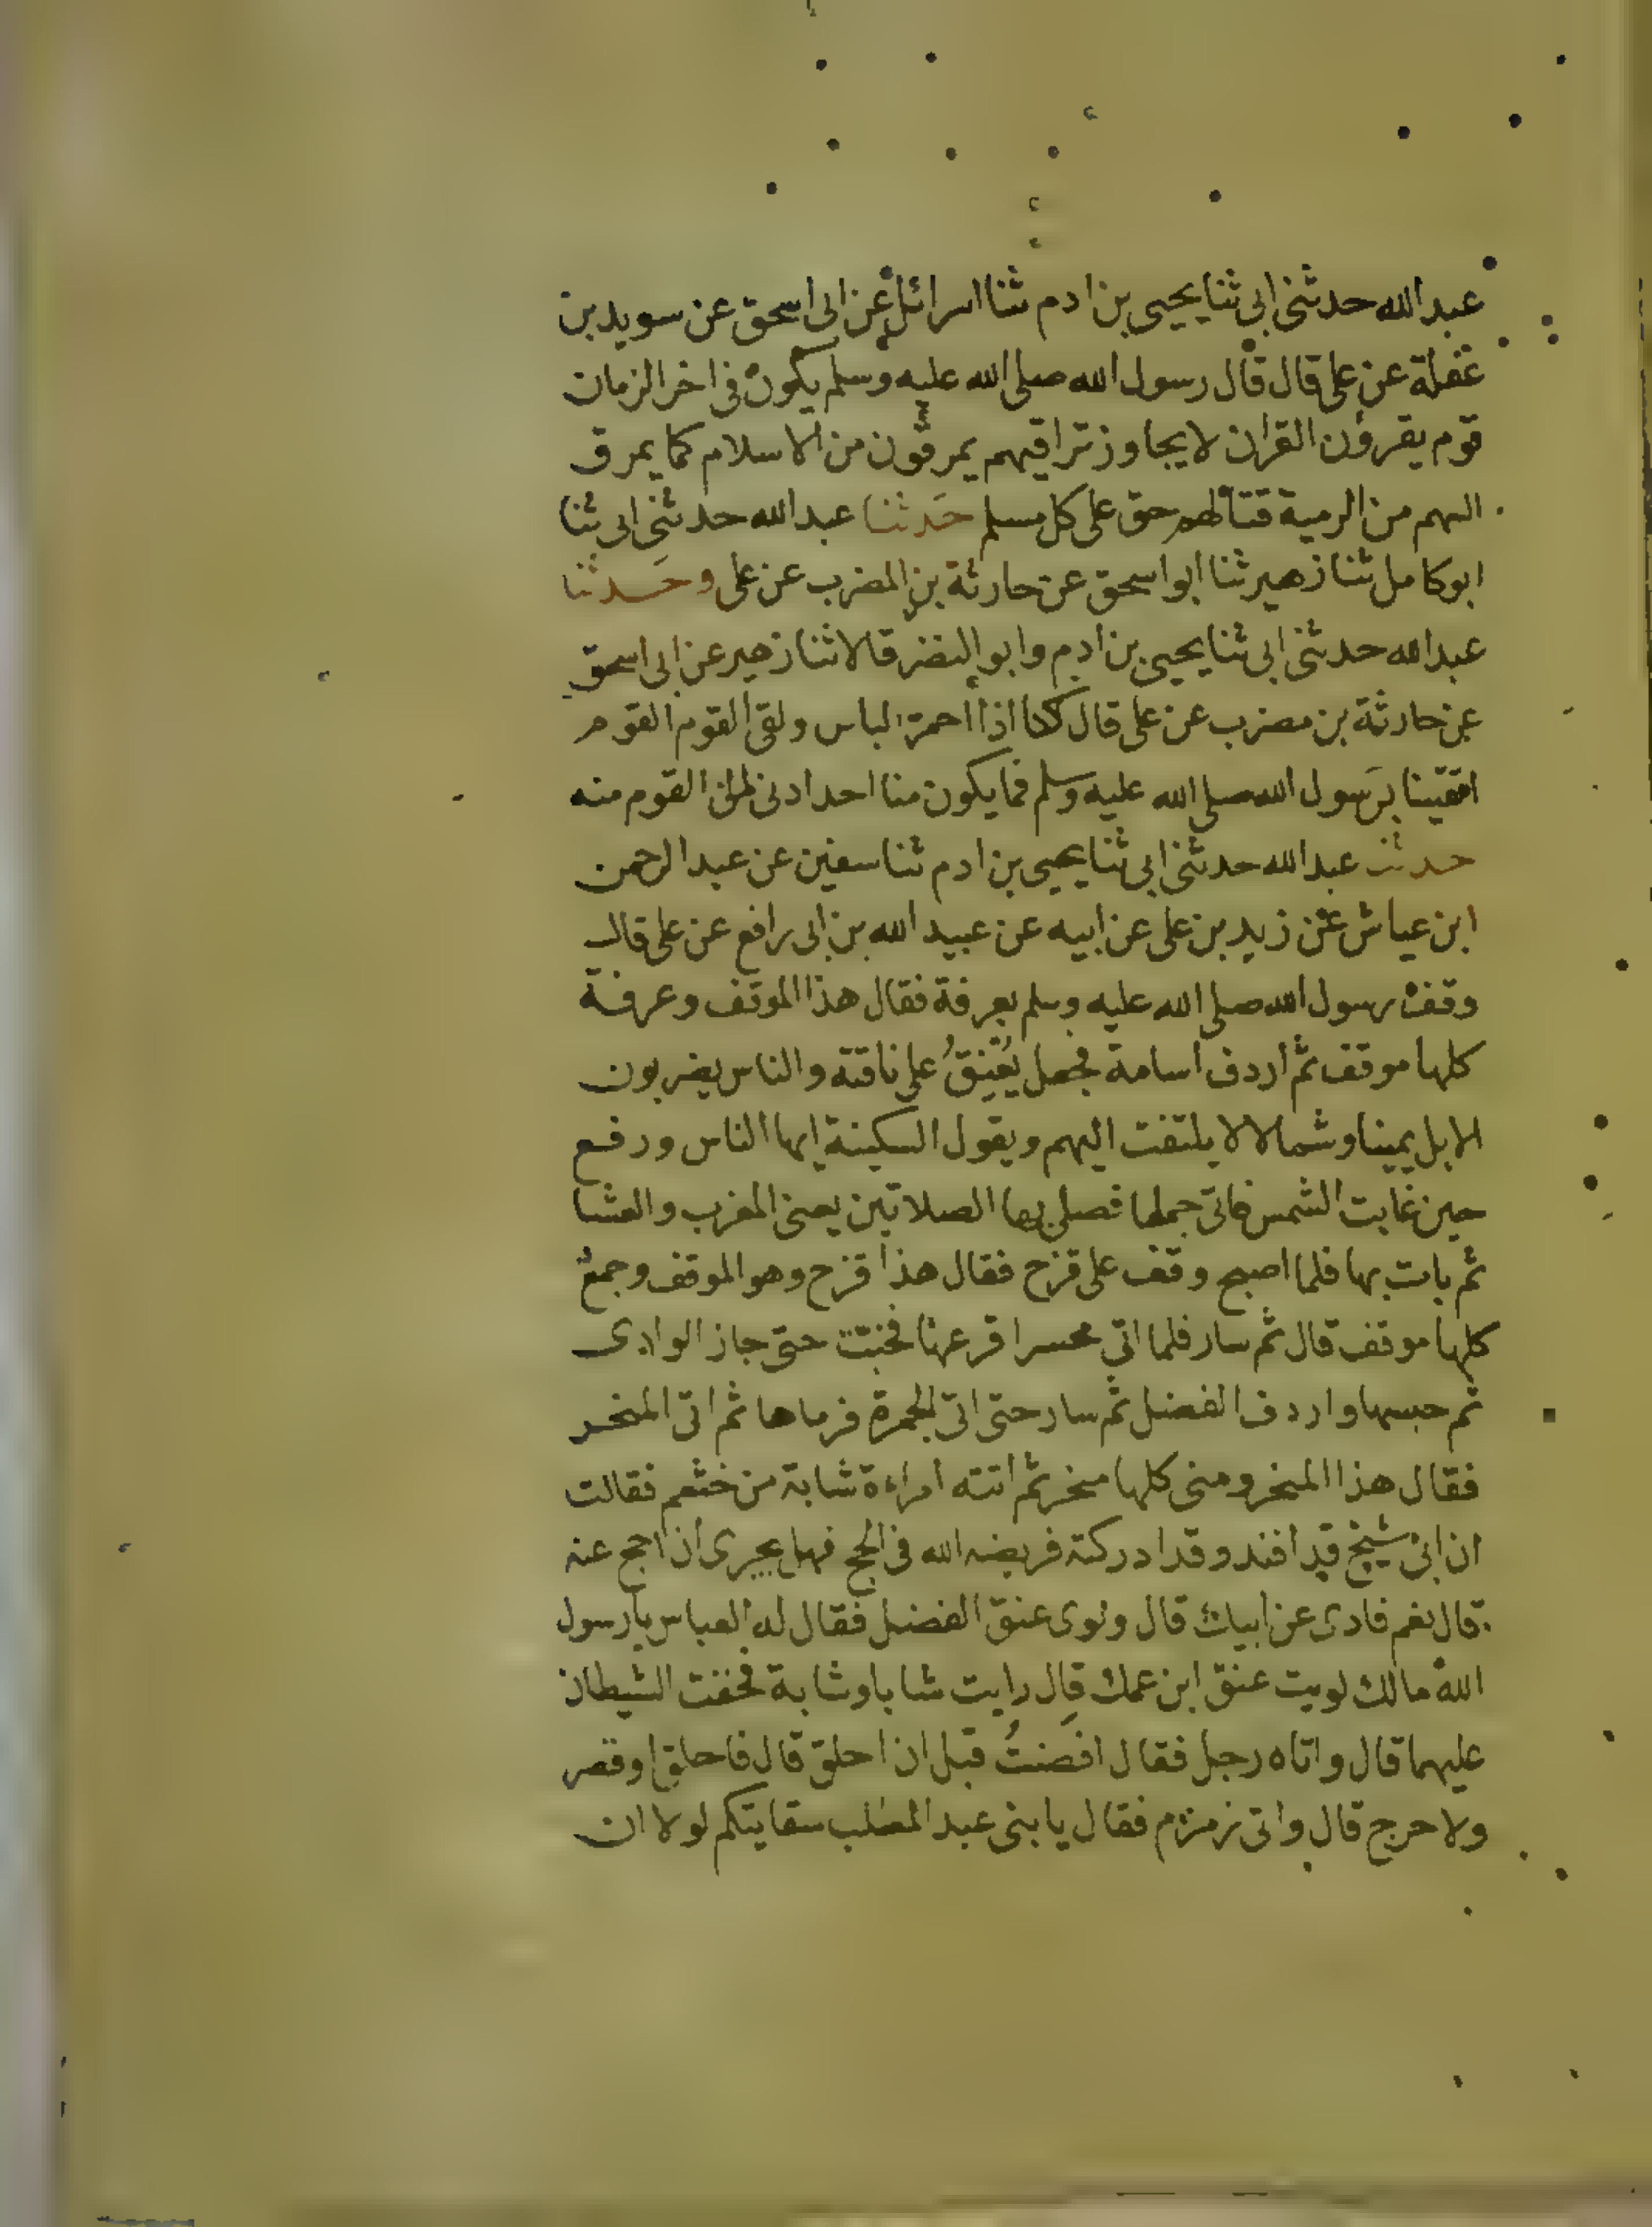 عبدالله حدثنى ابى ثنا يحيى بن ادم ثنا اسرائل عن ابى اسحق عن سويد بن
غفلة عن على قال قال رسول الله صلى الله عليه وسلم يكون فى اخر الزمان
قوم يقرؤن القران لا يجاوز تراقيهم يمرقون من الاسلام كما يمرق
السهم من الرمية قتالهم حق على كل مسلم حدثنا عبدالله حدثنى ابى ثنا
ابوكامل ثنا زهير ثنا ابو اسحق عن حارثة بن المضرب عن على وحدثنا
عبدالله حدثنى ابى ثنا يحيى بن ادم وابو النضر قالا ثنا زهير عن ابى اسحق
عن حارثة بن مضرب عن على قال كنا اذا احمر الباس ولقى القوم القوم
اتقينا برسول الله صلى الله عليه وسلم فما يكون منا احد ادنى القوم منه
حدثنا عبدالله حدثنى ابى ثنا يحيى بن ادم ثنا سفين عن عبد الرحمن
ابن عياش عن زيد بن على عن ابيه عن عبيد الله بن ابى رافع عن على قال
وقف رسول الله صلى الله عليه وسلم بعرفة فقال هذا الموقف وعرفة
كلها موقف ثم اردف اسامة فجعل يُعْنِقُ على ناقته والناس يضربون
الابل يمينا وشمالا لا يلتفت اليهم ويقول السكينة ايها الناس ودفع
حين غابت الشمس فاتى جمعا فصلى بها الصلاتين يعنى المغرب والعشا
ثم بات بها فلما اصبح وقف على قزح فقال هذا قزح وهو الموقف وجمع
كلها موقف قال ثم سار فلما اتى محسرا قرعها فخبت حتى جاز الوادى
ثم حبسها واردف الفضل ثم سار حتى اتى الجمرة فرماها ثم اتى المنحر
فقال هذا المنحر ومنى كلها منحر ثم اتته امراءة شابة من خثعم فقالت
ان ابى شيخ قد افند وقد ادركته فريضه الله فى الحج فهل يجرى ان احج عنه
قال نعم فادى عن ابيك قال ولوى عنق الفضل فقال له العباس يا رسول
الله مالك لويت عنق ابن عمك قال رايت شابا وشابة فخفت الشيطان
عليهما قال واتاه رجل فقال افضتُ قبل ان احلق قال فاحلق او قصر
ولا حرج قال واتى زمزم فقال يا بنى عبد المطلب سقايتكم لولا ان